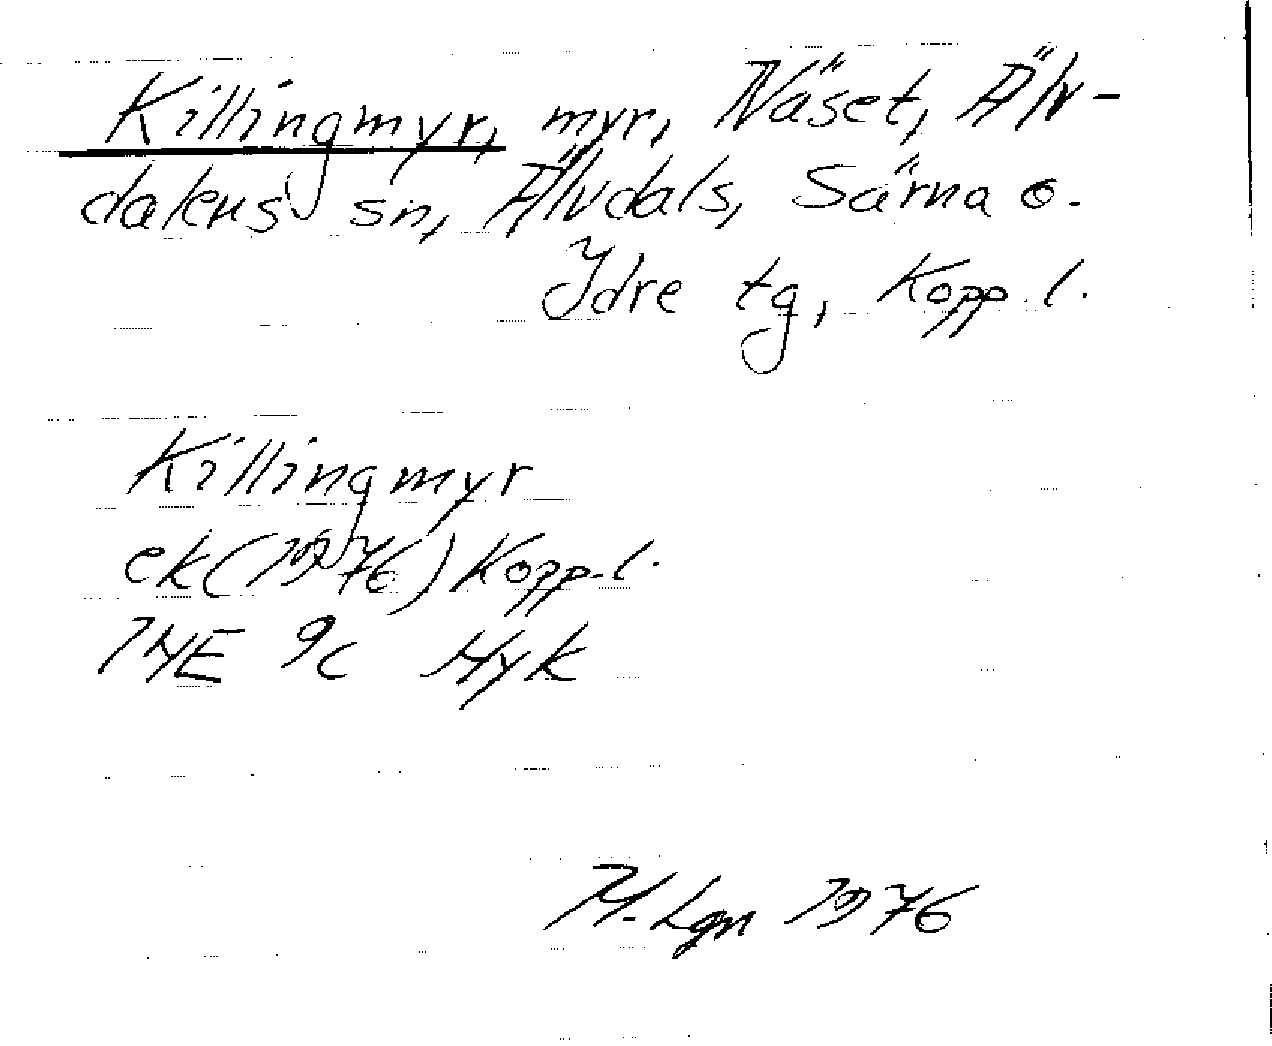 Killingmyr, myr, Näset, Älv-
dalens sn, Älvdals, Särna o.
Idre tg, Kopp. l.
Killingmyr
ek (1976) Kopp. l.
14E 9c Myk
1976